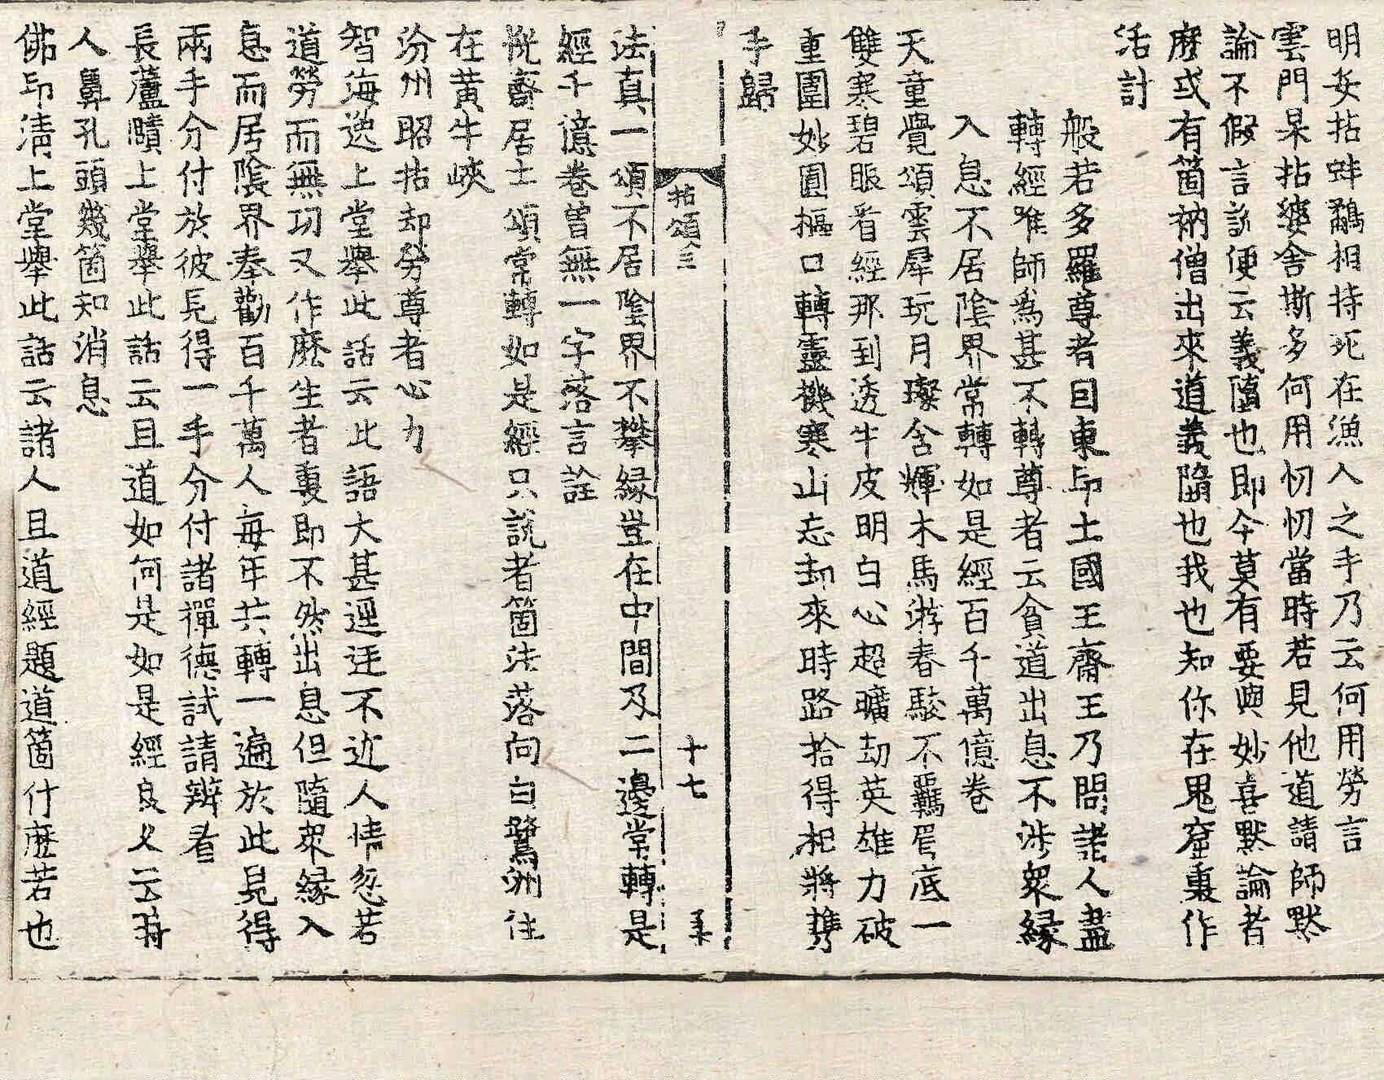 明安拈蚌鷸相持死在漁人之手乃云何用勞言
雲門杲拈婆舍斯多何用忉忉當時若見他道請師默
論不假言訟便云義墮也即今莫有要與妙喜默論者
麽或有箇衲僧出來道義墮也我也知你在鬼窟裏作
活計
般若多羅尊者因東印土國王齋王乃問諸人盡
轉經唯師爲甚不轉尊者云貧道出息不涉衆緣
入息不居陰界常轉如是經百千萬億卷
天童覺頌雲犀玩月璨含輝木馬游春駿不羈眉底一
雙寒碧眼看經那到透牛皮明白心超曠劫英雄力破
重圍妙圓樞口轉靈機寒山忘却來時路拾得相將攜
手歸
拈頌三
十七
法真一頌不居陰界不攀緣豈在中間及二邊常轉是
經千億卷曾無一字落言詮
悦齋居士頌常轉如是經只說者箇法落向白鷺洲住
在黄牛峽
汾州昭拈却勞尊者心力
智海逸上堂舉此話云此語大甚逕迋不近人情忽若
道勞而無功又作麽生者裏即不然出息但隨衆緣入
息而居陰界奉勸百千萬人每年共轉一遍於此見得
兩手分付於彼見得一手分付諸禪德試請辨看
長蘆賾上堂舉此話云且道如何是如是經良久云時
人鼻孔頭幾箇知消息
佛印清上堂舉此話云諸人且道經題道箇什麽若也